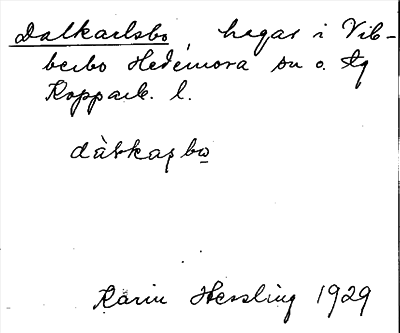 Dalkarlsbo, hagar i Vib-
berbo Hedemora sn o. tg
Kopparb. l.
dàlkaʂbo̲
Karin Hessling 1929